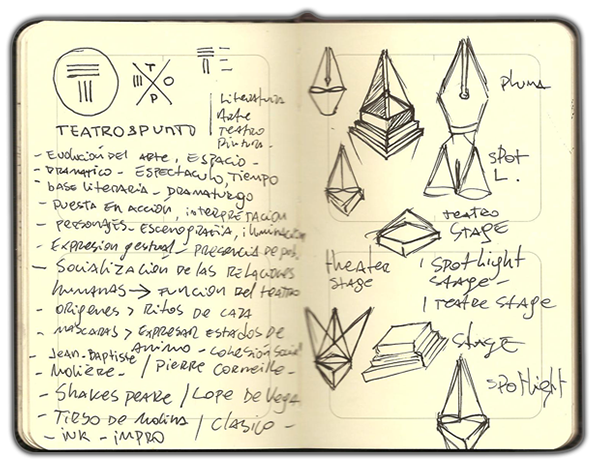 T
O
P
TEATROSPUNTO
Literatura
Arte
Teatro
Pintura -
- Evolución del arte, Espacio -
- Dramatico - Espectaculo, tiempo
- base literaria - Dramaturgo
- Puesta en acción, interpretación
- Personajes - Escenografia, iluminacion
- Expresion gestual - Presencia de
- Socialización de las relaciones
humanas → Función del teatro
- Origenes > Ritos de caza
- máscaras > Expresar estados de
animo - cohesión social
- Jean-Baptisse
- Molière - / Pierre Corneille -
- Shakespeare / Lope de Vega
- Tirso de Molina / Clasico -
- ink - impro
Pluma
Spot
L.
teatro
STAGE
theater
stage
/ Spotlight
stage -
/ Teatre stage
stage
Spotlight